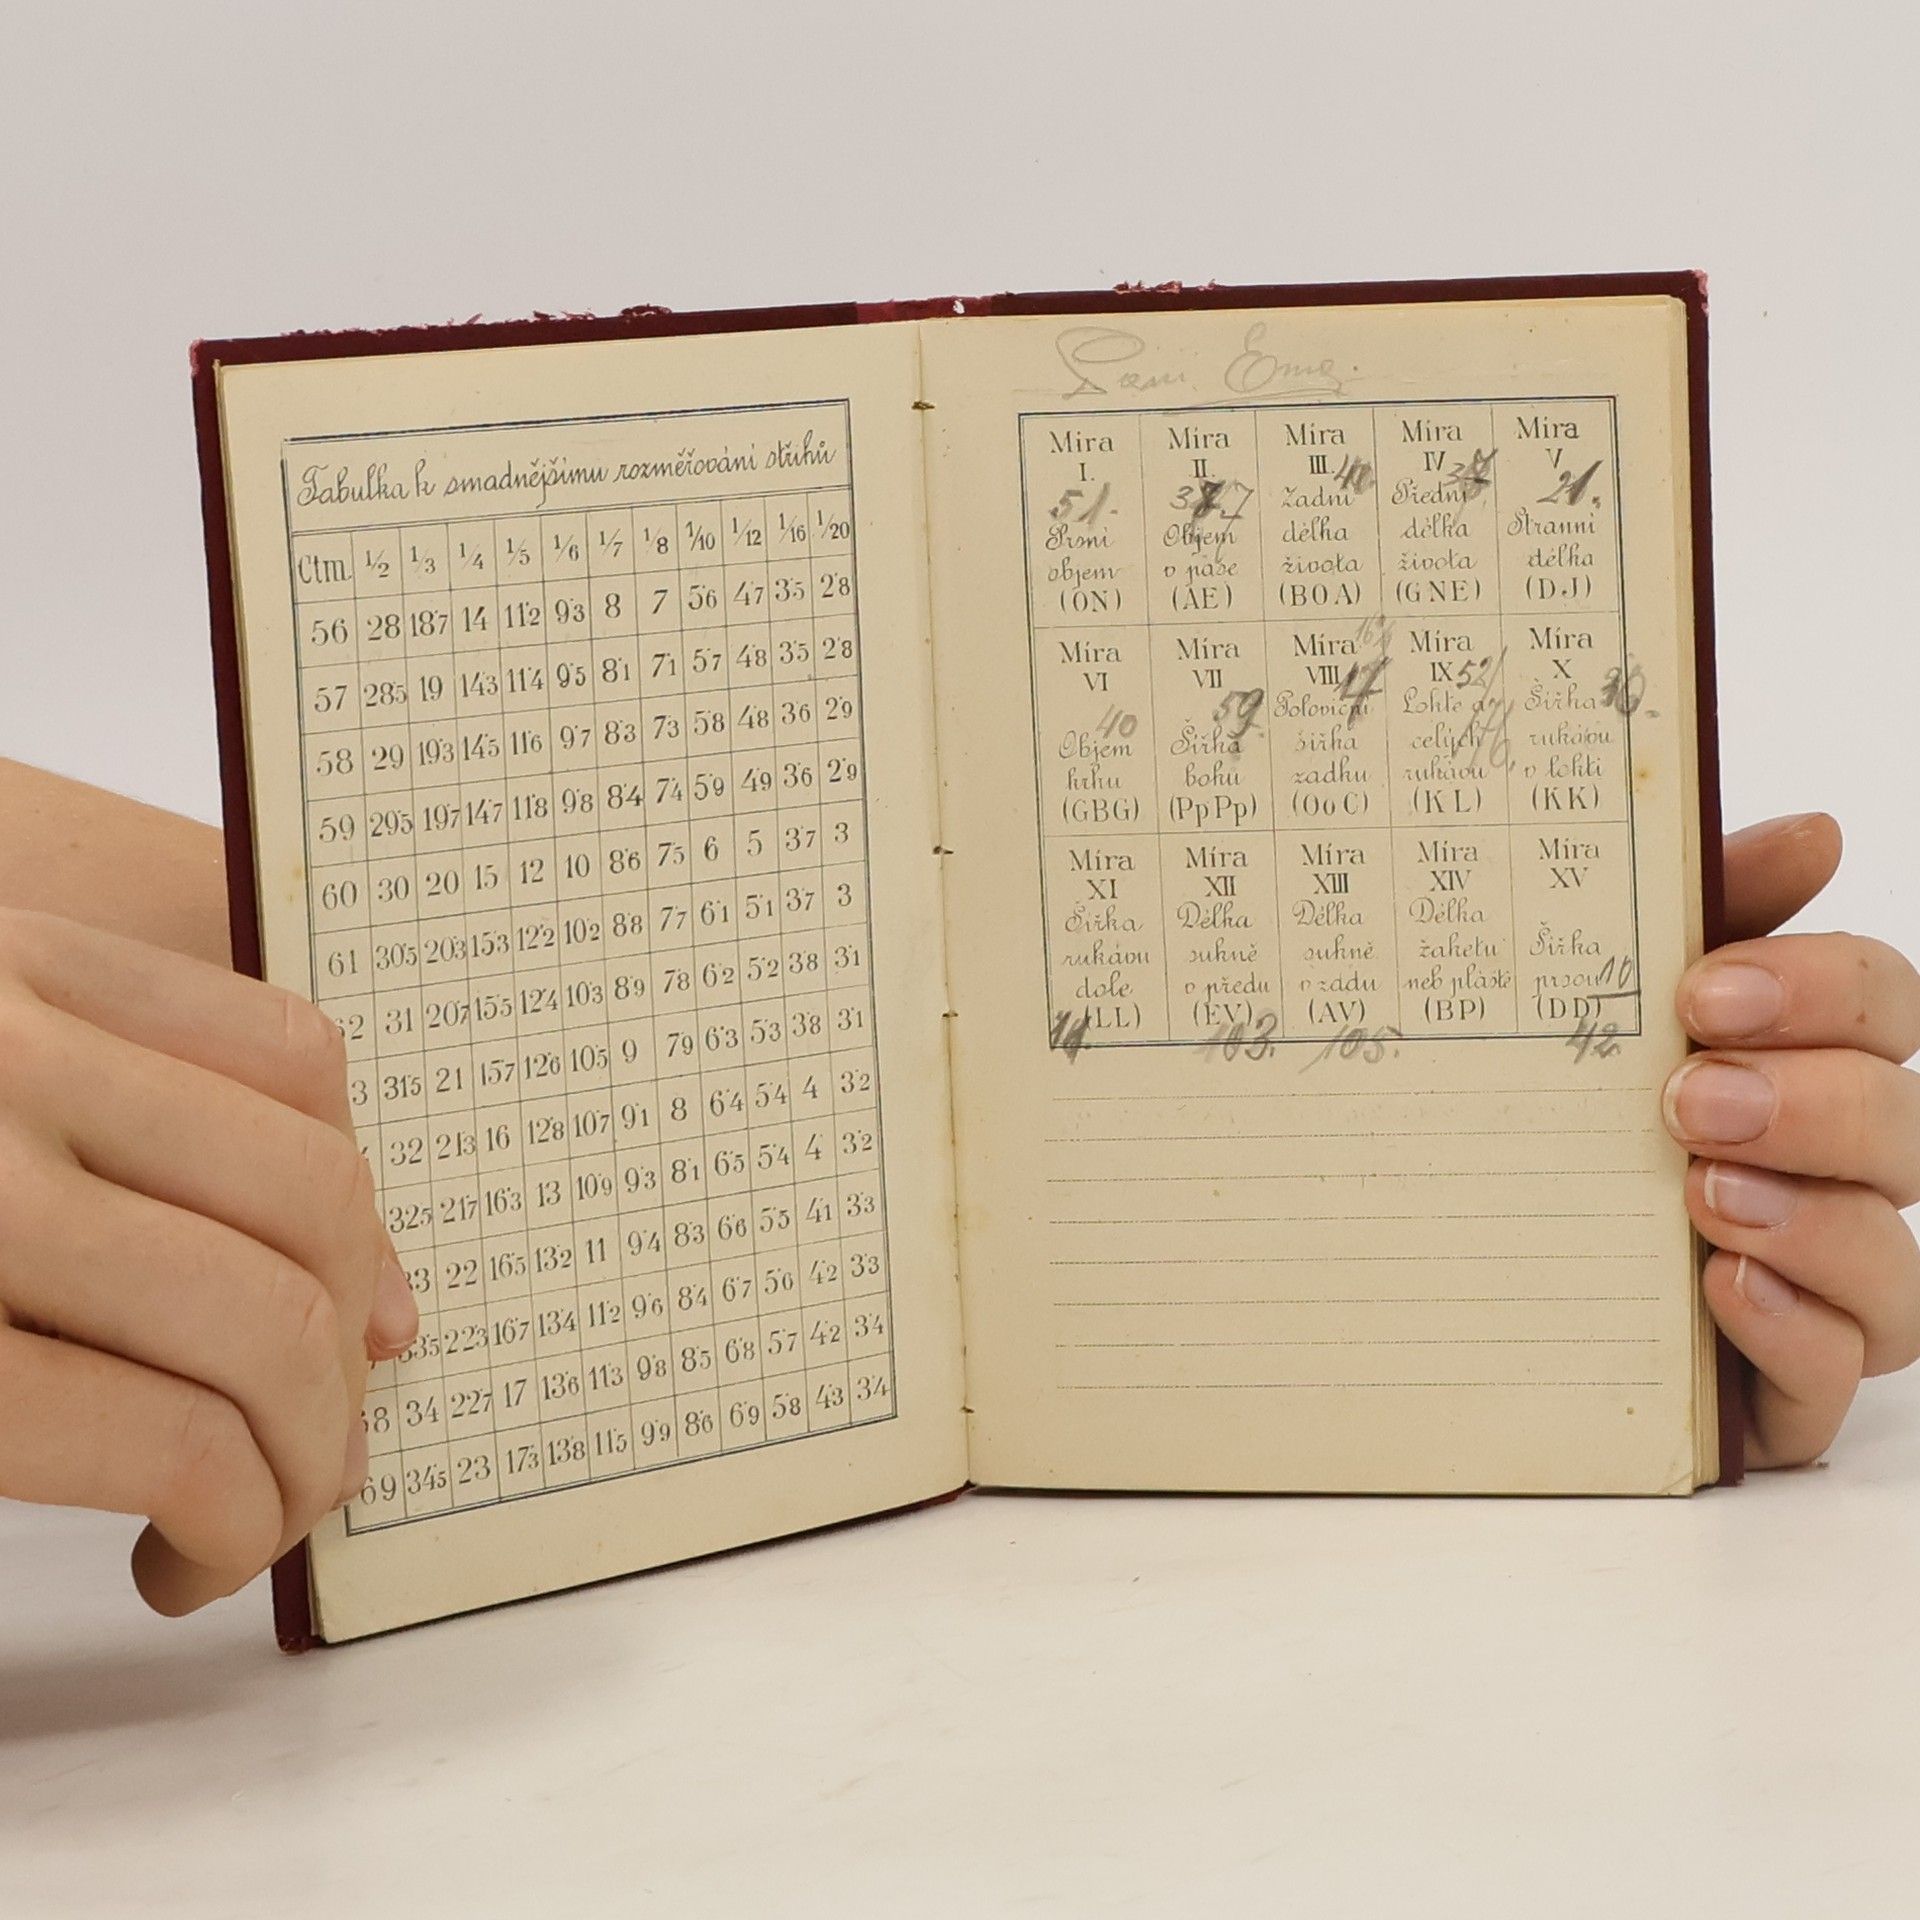 Tabulka k snadnějšimu rozměřováni střihů
Ctm. 1/2 1/3 1/4 1/5 1/6 1/7 1/8 1/10 1/12 1/16 1/20
56 28 18·7 14 11·2 9·3 8 7 5·6 4·7 3·5 2·8
57 28·5 19 14·3 11·4 9·5 8·1 7·1 5·7 4·8 3·5 2·8
58 29 19·3 14·5 11·6 9·7 8·3 7·3 5·8 4·8 3·6 2·9
59 29·5 19·7 14·7 11·8 9·8 8·4 7·4 5·9 4·9 3·6 2·9
60 30 20 15 12 10 8·6 7·5 6 5 3·7 3
61 30·5 20·3 15·3 12·2 10·2 8·8 7·7 6·1 5·1 3·7 3
2 31 20·7 15·5 12·4 10·3 8·9 7·8 6·2 5·2 3·8 3·1
3 31·5 21 15·7 12·6 10·5 9 7·9 6·3 5·3 3·8 3·1
32 21·3 16 12·8 10·7 9·1 8 6·4 5·4 4 3·2
32·5 21·7 16·3 13 10·9 9·3 8·1 6·5 5·4 4 3·2
33 22 16·5 13·2 11 9·4 8·3 6·6 5·5 4·1 3·3
3·5 22·3 16·7 13·4 11·2 9·6 8·4 6·7 5·6 4·2 3·3
68 34 22·7 17 13·6 11·3 9·8 8·5 6·8 5·7 4·2 3·4
69 34·5 23 17·3 13·8 11·5 9·9 8·6 6·9 5·8 4·3 3·4
Paní Ema.
Míra Míra Míra Míra Míra
I. II. III. IV. V.
51. 21.
Prsní Objem Zadní Přední Stranní
objem v páse délka délka délka
života života
(ON) (AE) (BOA) (GNE) (DJ)
Míra Míra Míra Míra Míra
VI VII VIII IX X
40 59. 17 52
Objem Šířka Poloviční Lokte a Šířka
krku boku šířka celých rukávu
zadku rukávu v lokti
(GBG) (PpPp) (OoC) (KL) (KK)
Míra Míra Míra Míra Míra
XI XII XIII XIV XV
Šířka Délka Délka Délka Šířka
rukávu sukně sukně žaketu prsou 10
dole v předu v zadu neb pláště
(LL) (EV) (AV) (BP) (DD)
103. 105. 42